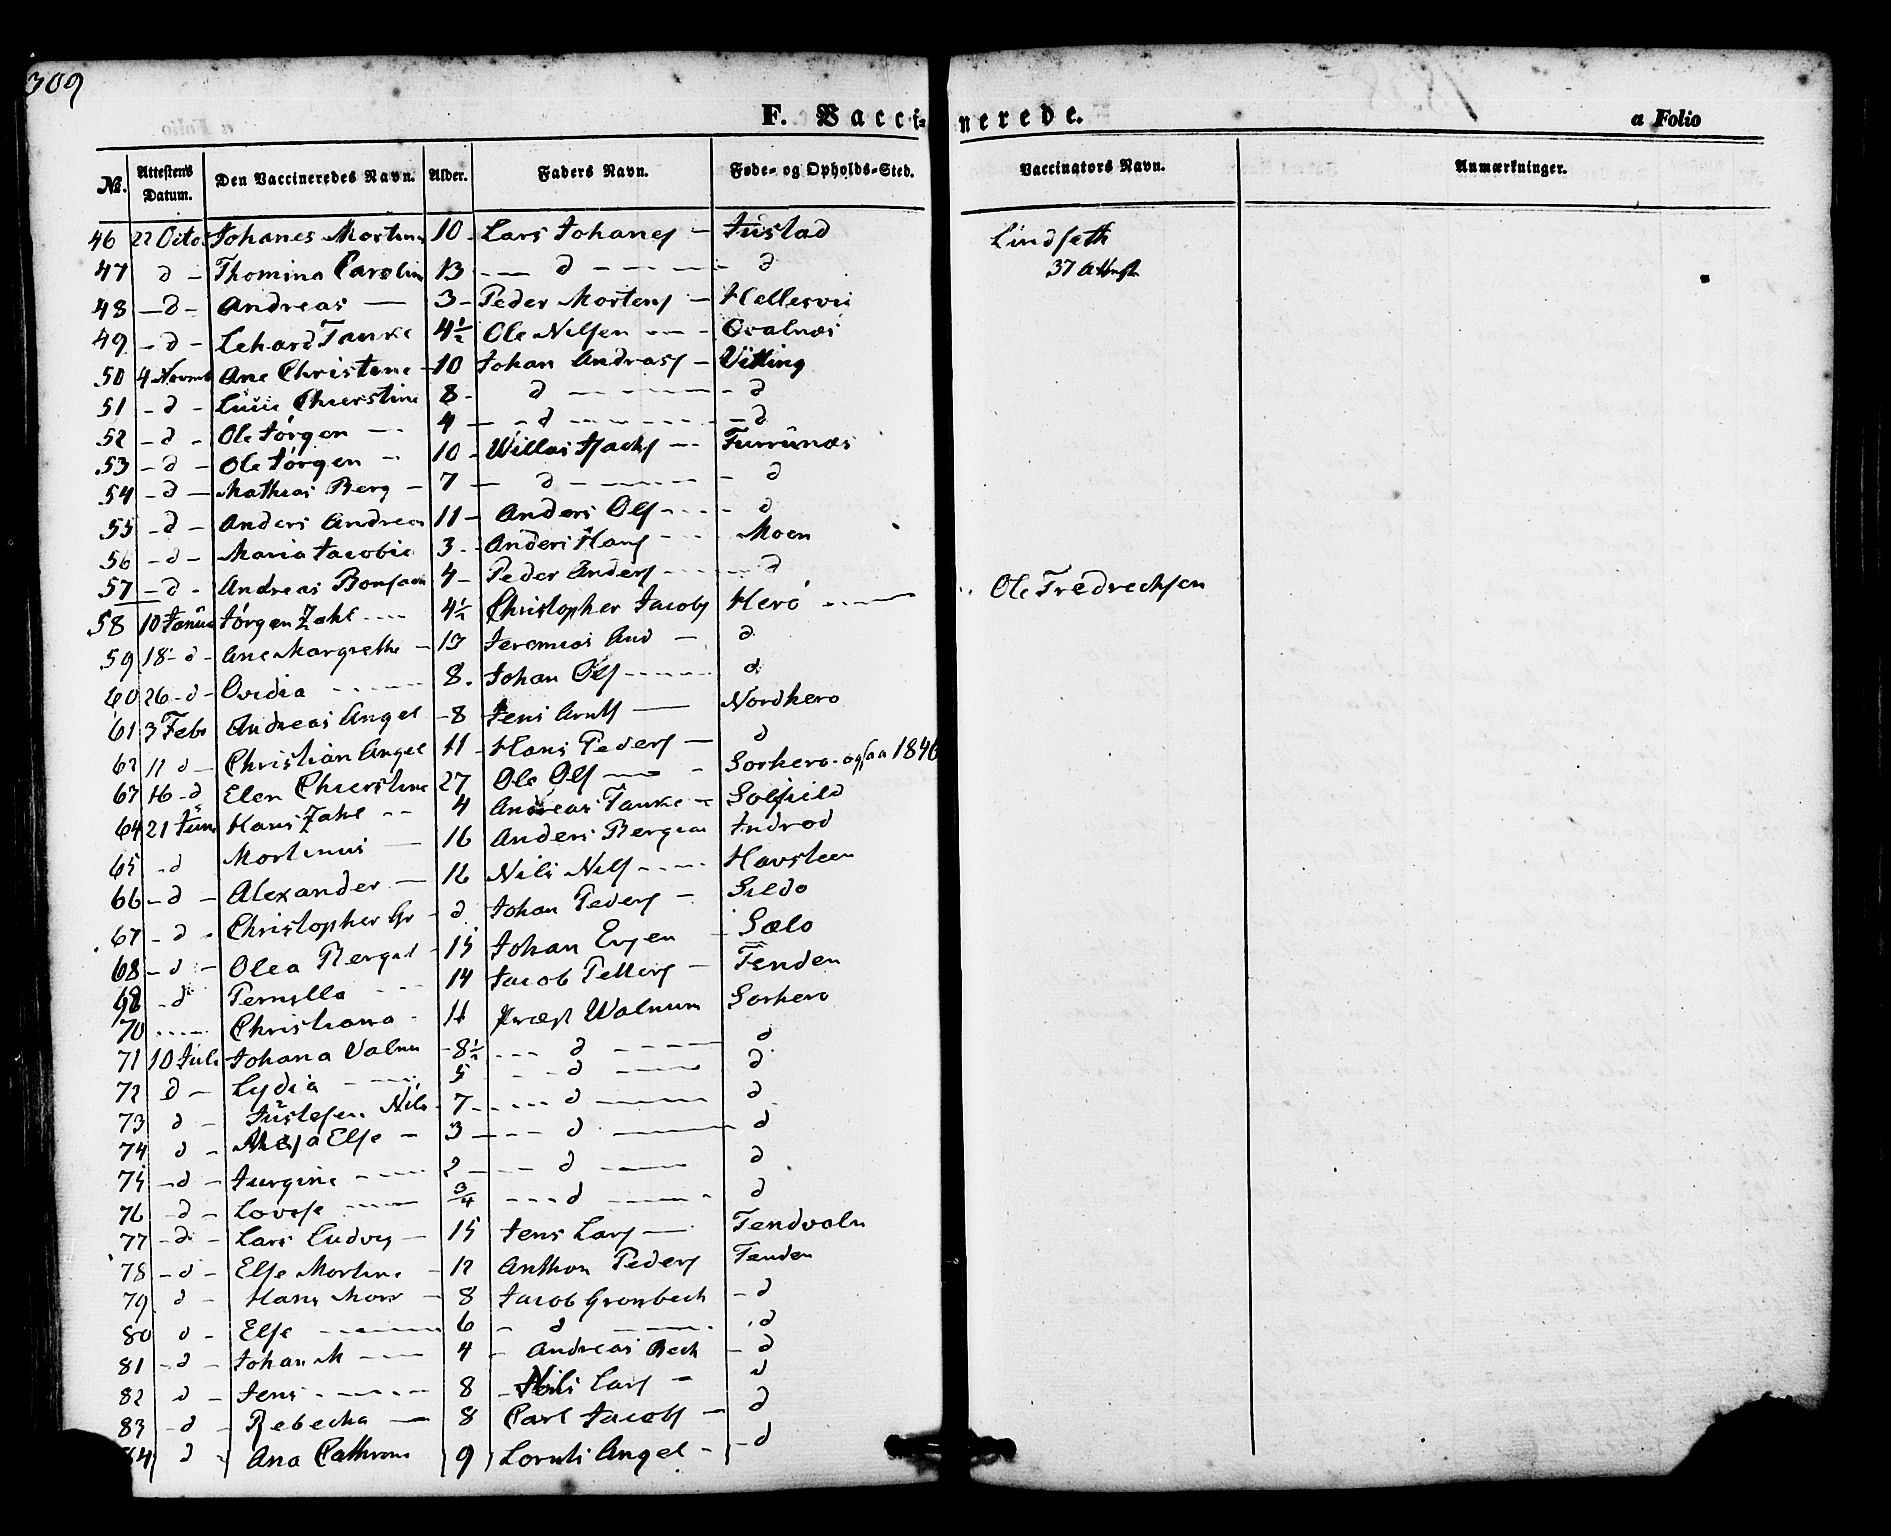 309
F. Vaccinerede.
a Folio
No. Attestens Datum. Den Vaccineredes Navn. Alder. Faders Navn. Føde- og Opholds-Sted. Vaccinators Navn. Anmærkninger.
46 22 Octo Johanes Morten 10 Lars Johanes - Tustad Lindseth
47 d - Thomina Carolin 13 - d - d 37 Attest
48 - d - Andreas 3 - Peder Mortens - Hellesvii
49 - d - Lehard Tanke 4 1/2 Ole Nilsen - Qvalnæs
50 4 Novmb Ane Christene - 10 Johan Andreass - Vitting
51 - d - Lucie Chierstine 8 - d - d
52 - d - Ole Jörgen 4 - d - d
53 - d - Ole Jörgen 10 - Willas Isachs - Furrünæs
54 - d - Mathias Berg - 7 - d - d
55 - d - Anders Andreas 11 - Anders Ols - d
56 - d - Maria Jacobie 3 - Anders Hans - Moen
57 - d - Andreas Bonsach 4 - Peder Anders - d
58 10 Janua Jörgen Zahl 4 1/2 Christopher Jacobs Herö Ole Fredrechsen
59 18 - d - Ane Margrethe - 13 Jeremias And - d
60 26 - d - Ovidia 8. Johan Ols d
61 3 Feb Andreas Angel - 8 Jens Arnts Nordhero
62 11 d - Christian Angel 11 - Hans Peders - d
63 16 - d Elen Chierstine 27 Ole Ols - Sorhero - ogsaa 1846
64 21 Juni Hans Zahl - 4 Andreas Tanke - Solfield
65 - d Mortinus - 16 Anders Bergeas Indrod
66 - d - Alexander - 16 Nils Nils - Havsteen
67 - d - Christopher Gr - d Johan Peders - Sildo
68 - d - Olea Berget - 15 Johan Evjen - Sælo
69 - d Pernilla 14 Jacob Petters - Tenden
70 Christiana - 11 Præst Walnum Sorhero
71 10 Juli Johana Valnu - 8 1/2 - d - d
72 d - Lydia 5 - d - d
73 d - Justesen Nils 7 - d - d
74 d - Maja Else - 3 - d - d
75 - d - Jurgine 2 - d - d
76 - d - Lovise 3/4 - d - d
77 - d - Lars Ludvig - 15 Jens Lars - Tendvaln
78 - d - Else Mortine - 12 Anthon Peders Tenden
79 d - Hans Mors - 8 Jacob Gronbech - d
80 d - Else 6 - d - d
81 - d - Johan M 4 - Andreas Bech - d
82 d - Jens 8 - Nils Lars - d
83 - d - Rebecka - 8 Carl Jacobs - d
84 d - Ana Cathrine 9 Lornts Angel - d